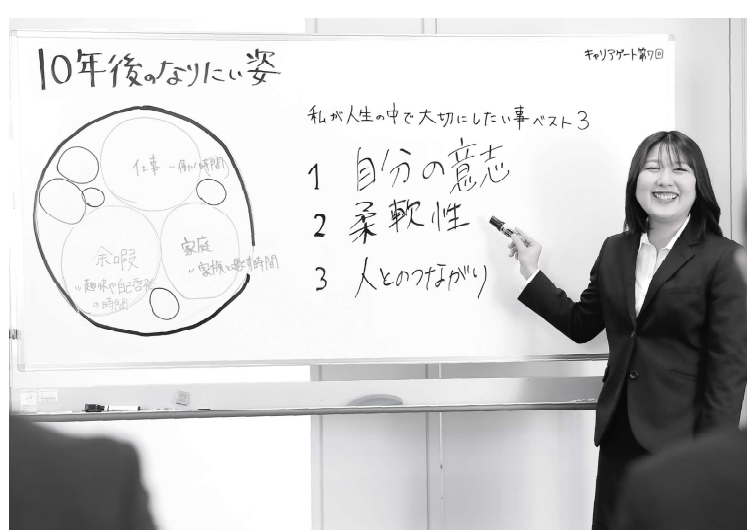 10年後のなりたい姿
キャリアゲート第7回
私が人生の中で大切にしたい事ベスト3
1 自分の意志
2 柔軟性
3 人とのつながり
仕事
働く時間
余暇
趣味や自己啓発
の時間
家庭
家族と過ごす時間